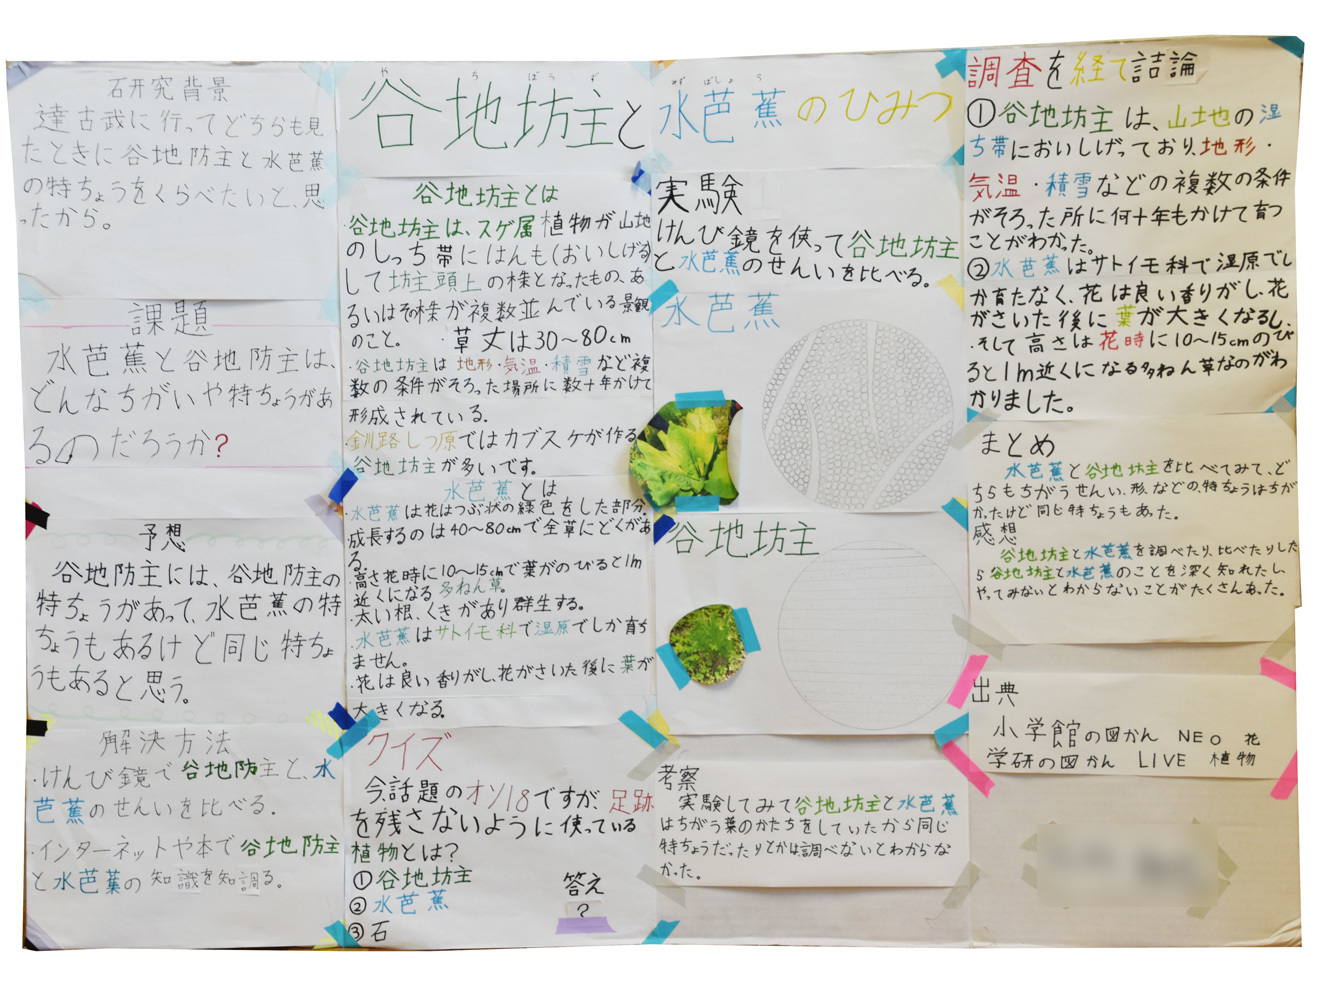 谷地坊主と
や ち ぼう ず
水芭蕉のひみつ
みず ばしょう
石研究背景
達古武に行ってどちらも見
たときに谷地防主と水芭蕉
の特ちょうをくらべたいと、思
ったから。
課題
水芭蕉と谷地防主は、
どんなちがいや特ちょうがあ
るのだろうか?
予想
谷地防主には、谷地防主の
特ちょうがあって、水芭蕉の特
ちょうもあるけど同じ特ちょ
うもあると思う。
解決方法
・けんび鏡で谷地防主と、水
芭蕉のせんいを比べる.
・インターネットや本で谷地防主
と水芭蕉の知識を知調る。
谷地坊主とは
谷地坊主は、スゲ属植物が山地
のしっち帯にはんも(おいしげる)
して坊主頭上の株となったもの、あ
るいはその株が複数並んでいる景観
のこと。 ・草丈は30〜80cm
・谷地坊主は地形・気温・積雪など複
数の条件がそろった場所に数十年かけて
形成されている.
釧路しつ原ではカブスゲが作る
谷地坊主が多いです。
水芭蕉とは
・水芭蕉は花はつぶ状の緑色をした部分.
・成長するのは40〜80cmで全草にどくがあ
る.
・高さ花時に10〜15cmで葉がのびると1m
近くになる多ねん草。
・太い根、くきがあり群生する。
・水芭蕉はサトイモ科で湿原でしか育ち
ません。
・花は良い香りがし、花がさいた後に葉が
大きくなる。
クイズ
今話題のオソ18ですが、足跡
を残さないように使っている
植物とは?
①谷地坊主
②水芭蕉
③石
答え
?
実験
けんび鏡を使って谷地坊主
と水芭蕉のせんいを比べる。
水芭蕉
谷地坊主
考察
実験してみて谷地坊主と水芭蕉
はちがう葉のかたちをしていたから同じ
特ちょうだったりとかは調べないとわからな
かった。
調査を経て詰論
①谷地坊主は、山地の湿
ち帯においしげっており、地形・
気温・積雪などの複数の条件
がそろった所に何十年もかけて育つ
ことがわかった。
②水芭蕉はサトイモ科で湿原でし
か育たなく、花は良い香りがし、花
がさいた後に葉が大きくなるし、
・そして高さは花時に10〜15cmのび
ると1m近くになる多ねん草なのがわ
かりました。
まとめ
水芭蕉と谷地坊主を比べてみて、ど
ちらもちがうせんい、形、などの、特ちょうはちが
かったけど同じ特ちょうもあった。
感想
谷地坊主と水芭蕉を調べたり、比べたりした
ら谷地坊主と水芭蕉のことを深く知れたし、
やってみないとわからないことがたくさんあった。
出典
小学館の図かん NEO 花
学研の図かん LIVE 植物